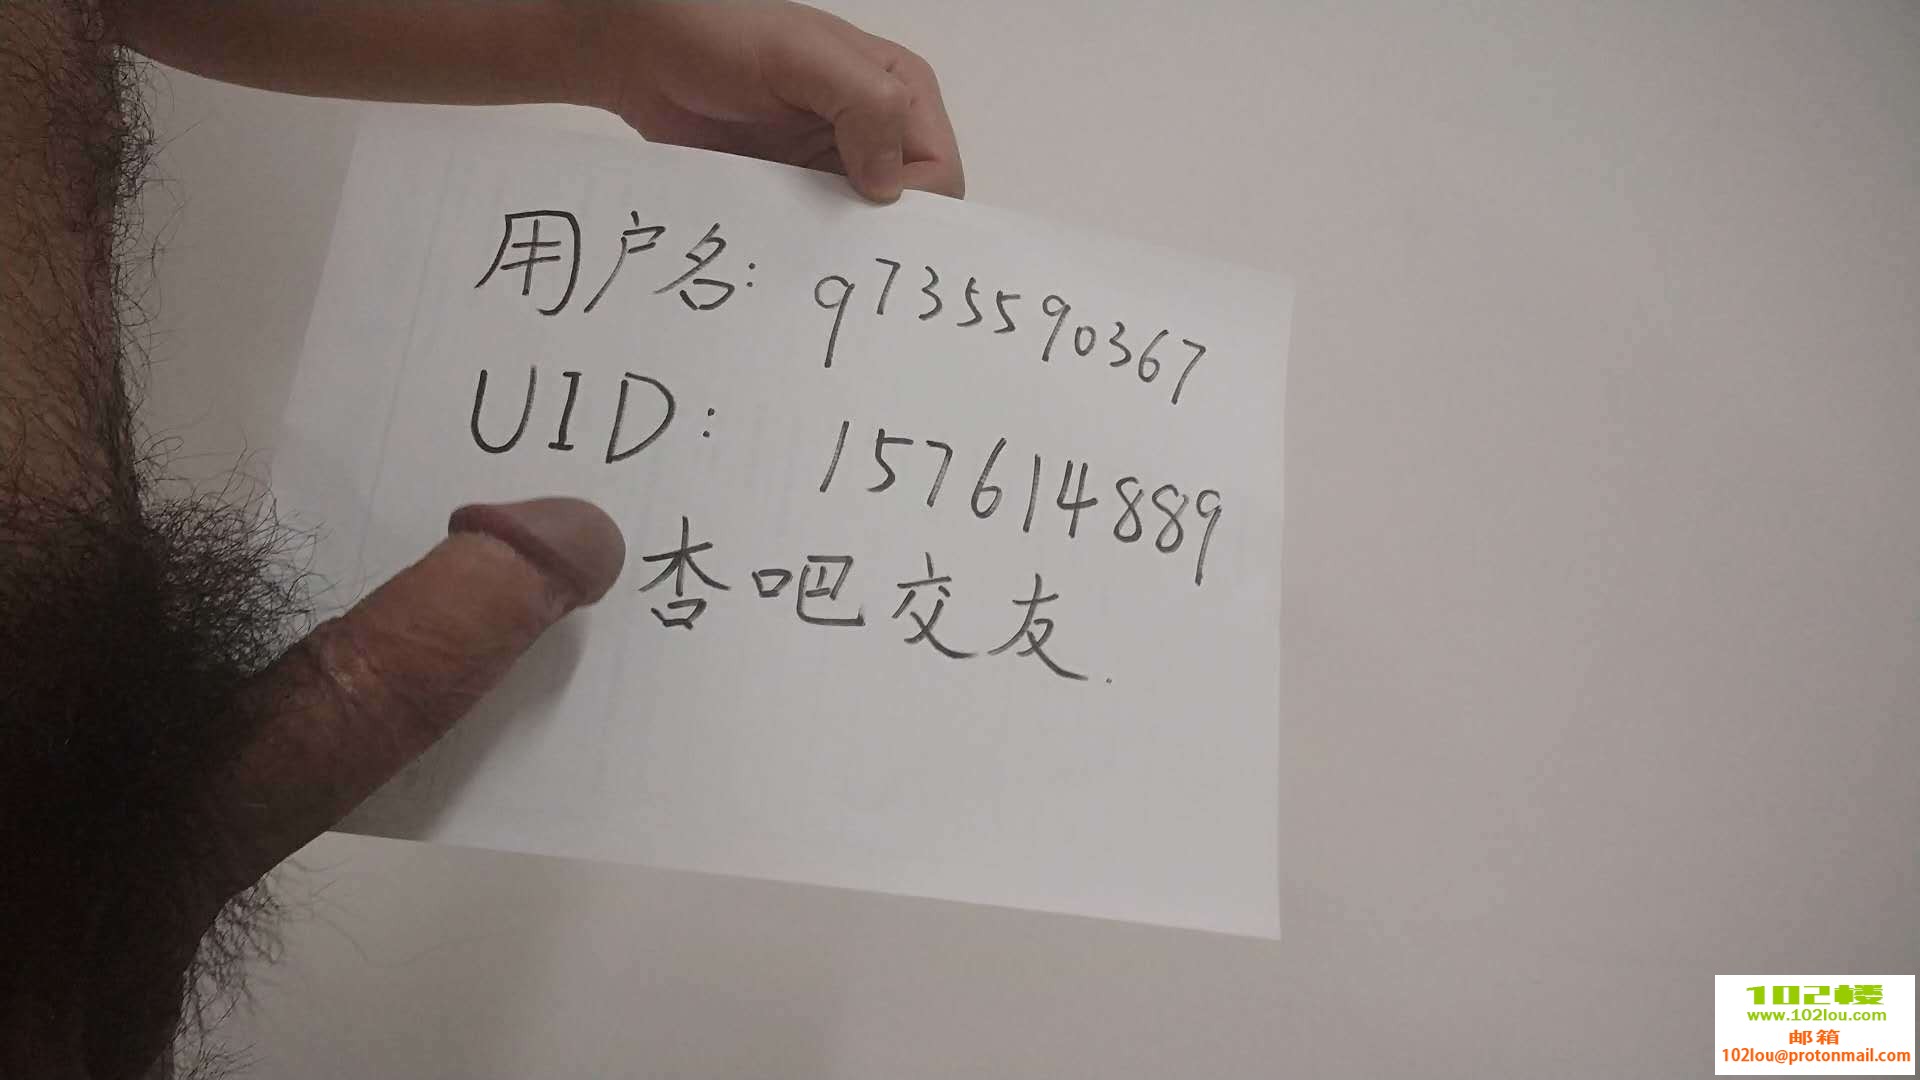 用户名: q735590367
UID: 157614889
杏吧交友.
102楼
www.102lou.com
邮箱
102lou@protonmail.com